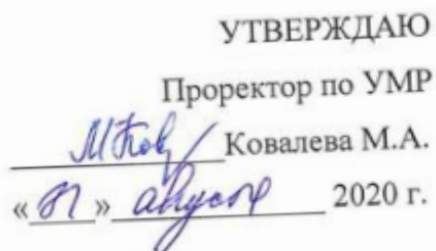 УТВЕРЖДАЮ
Проректор по УМР
Ковалева М.А.
«31» августа 2020 г.